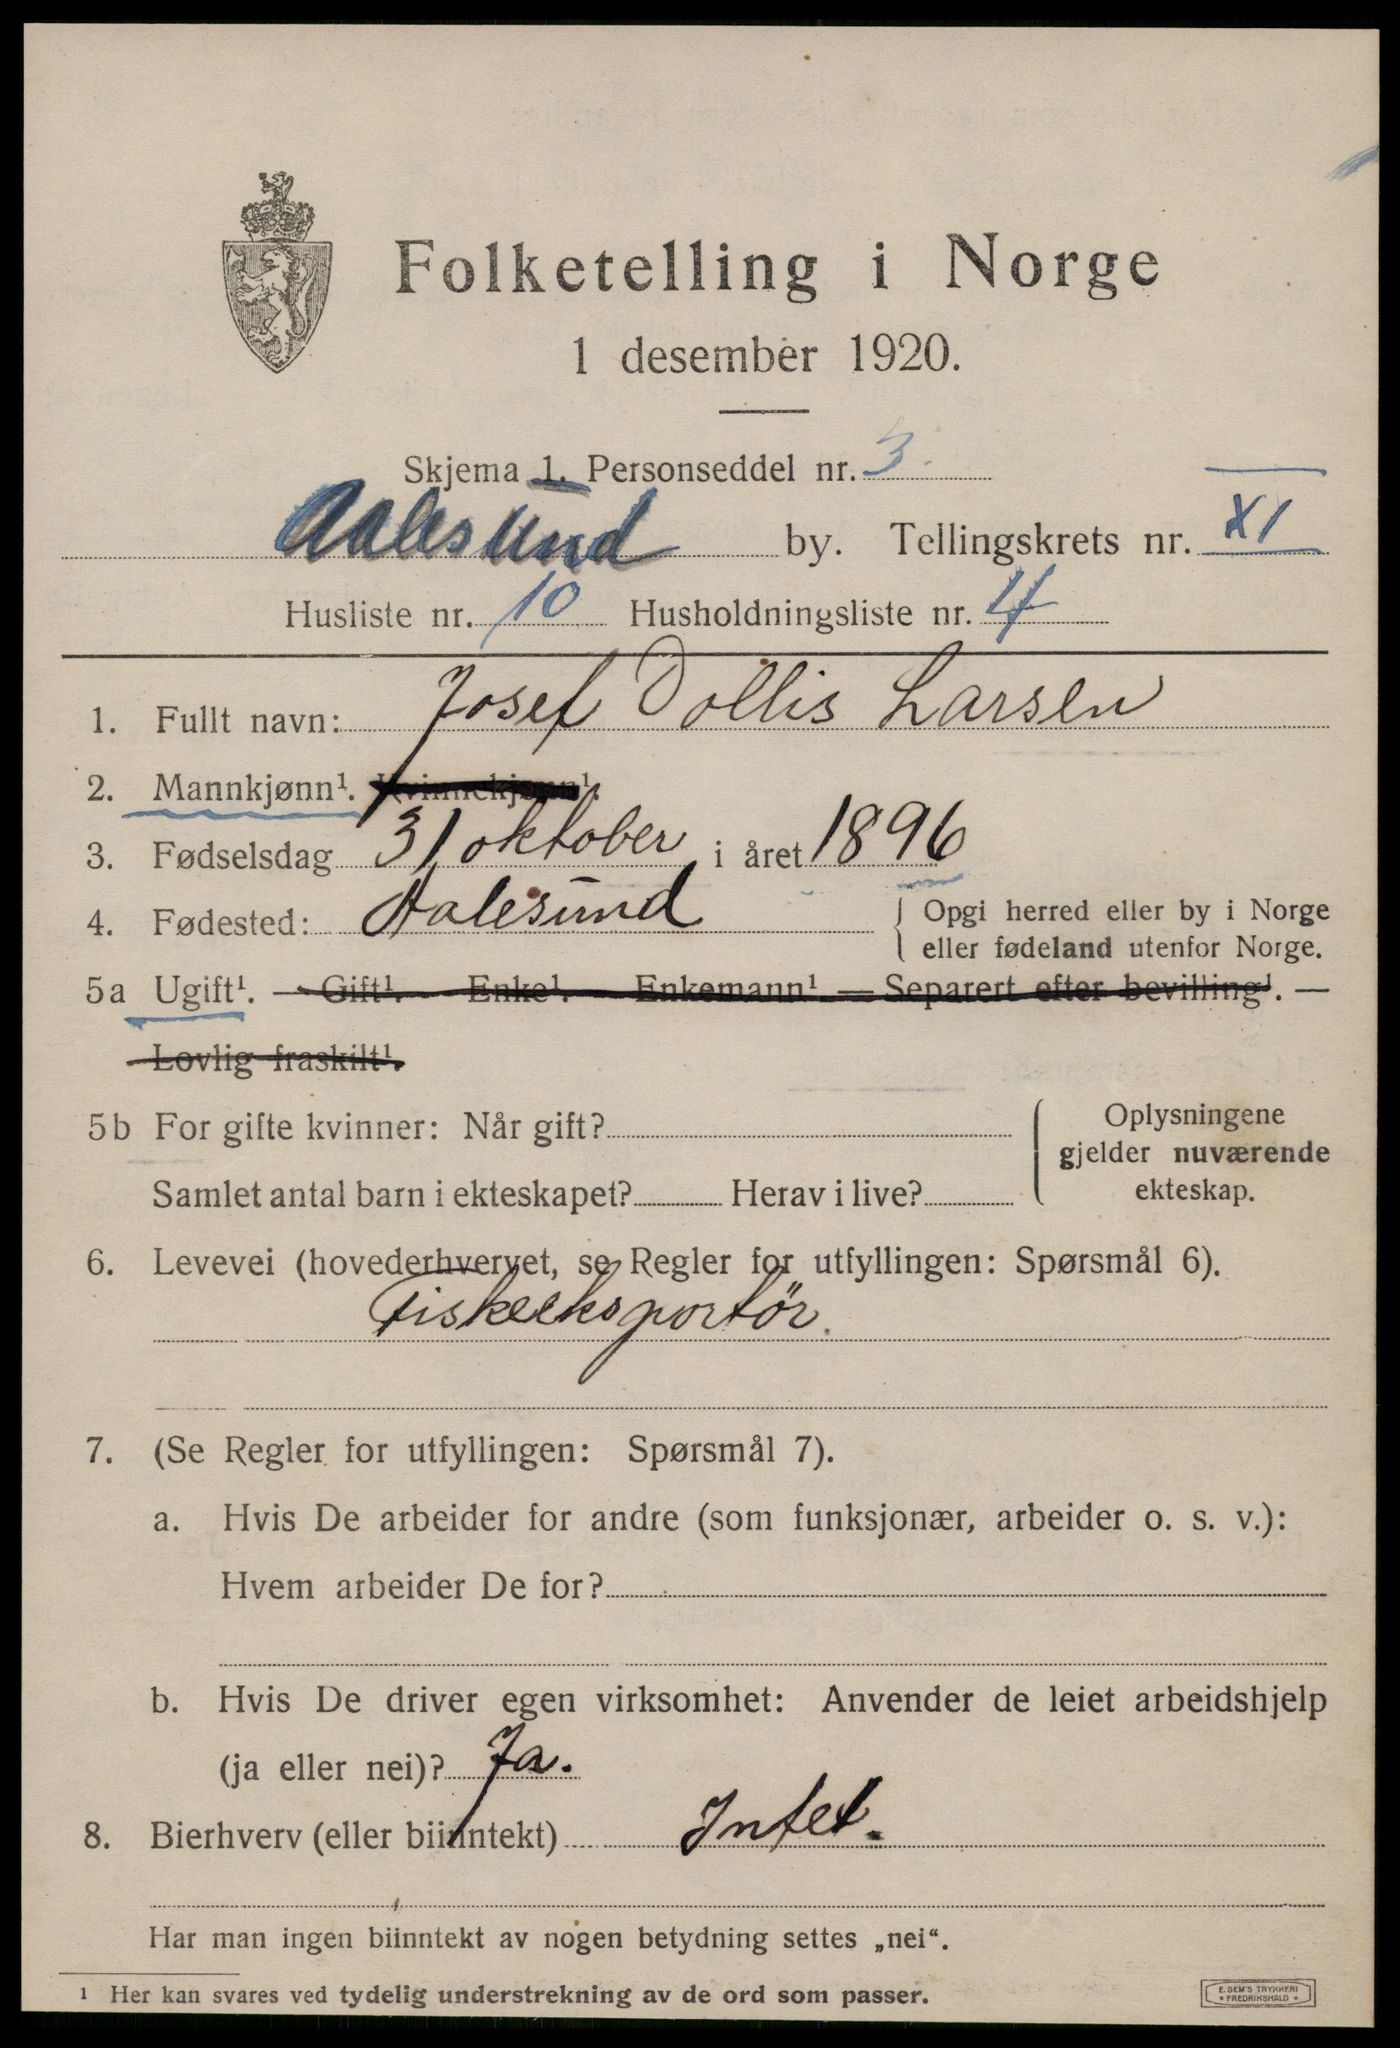 Folketelling i Norge
1 desember 1920.
Skjema 1. Personseddel nr. 3.
Aalesund by. Tellingskrets nr. XI
Husliste nr. 10 Husholdningsliste nr. 4
1. Fullt navn: Josef Dollis Larsen
2. Mannkjønn¹. Kvinnekjønn¹.
3. Fødselsdag 31 oktober i året 1896
4. Fødested: Aalesund { Opgi herred eller by i Norge
eller fødeland utenfor Norge.
5a Ugift¹. — Gift¹. — Enke¹. — Enkemann¹. — Separert efter bevilling¹. —
Lovlig fraskilt¹.
5b For gifte kvinner: Når gift? { Oplysningene
gjelder nuværende
ekteskap.
Samlet antal barn i ekteskapet? Herav i live?
6. Levevei (hovederhvervet, se Regler for utfyllingen: Spørsmål 6).
Fiskeeksportör.
7. (Se Regler for utfyllingen: Spørsmål 7).
a. Hvis De arbeider for andre (som funksjonær, arbeider o. s. v.):
Hvem arbeider De for?
b. Hvis De driver egen virksomhet: Anvender de leiet arbeidshjelp
(ja eller nei)? Ja.
8. Bierhverv (eller biinntekt) Intet.
Har man ingen biinntekt av nogen betydning settes „nei“.
¹ Her kan svares ved tydelig understrekning av de ord som passer.
E. SEM'S TRYKKERI
• FREDRIKSHALD •